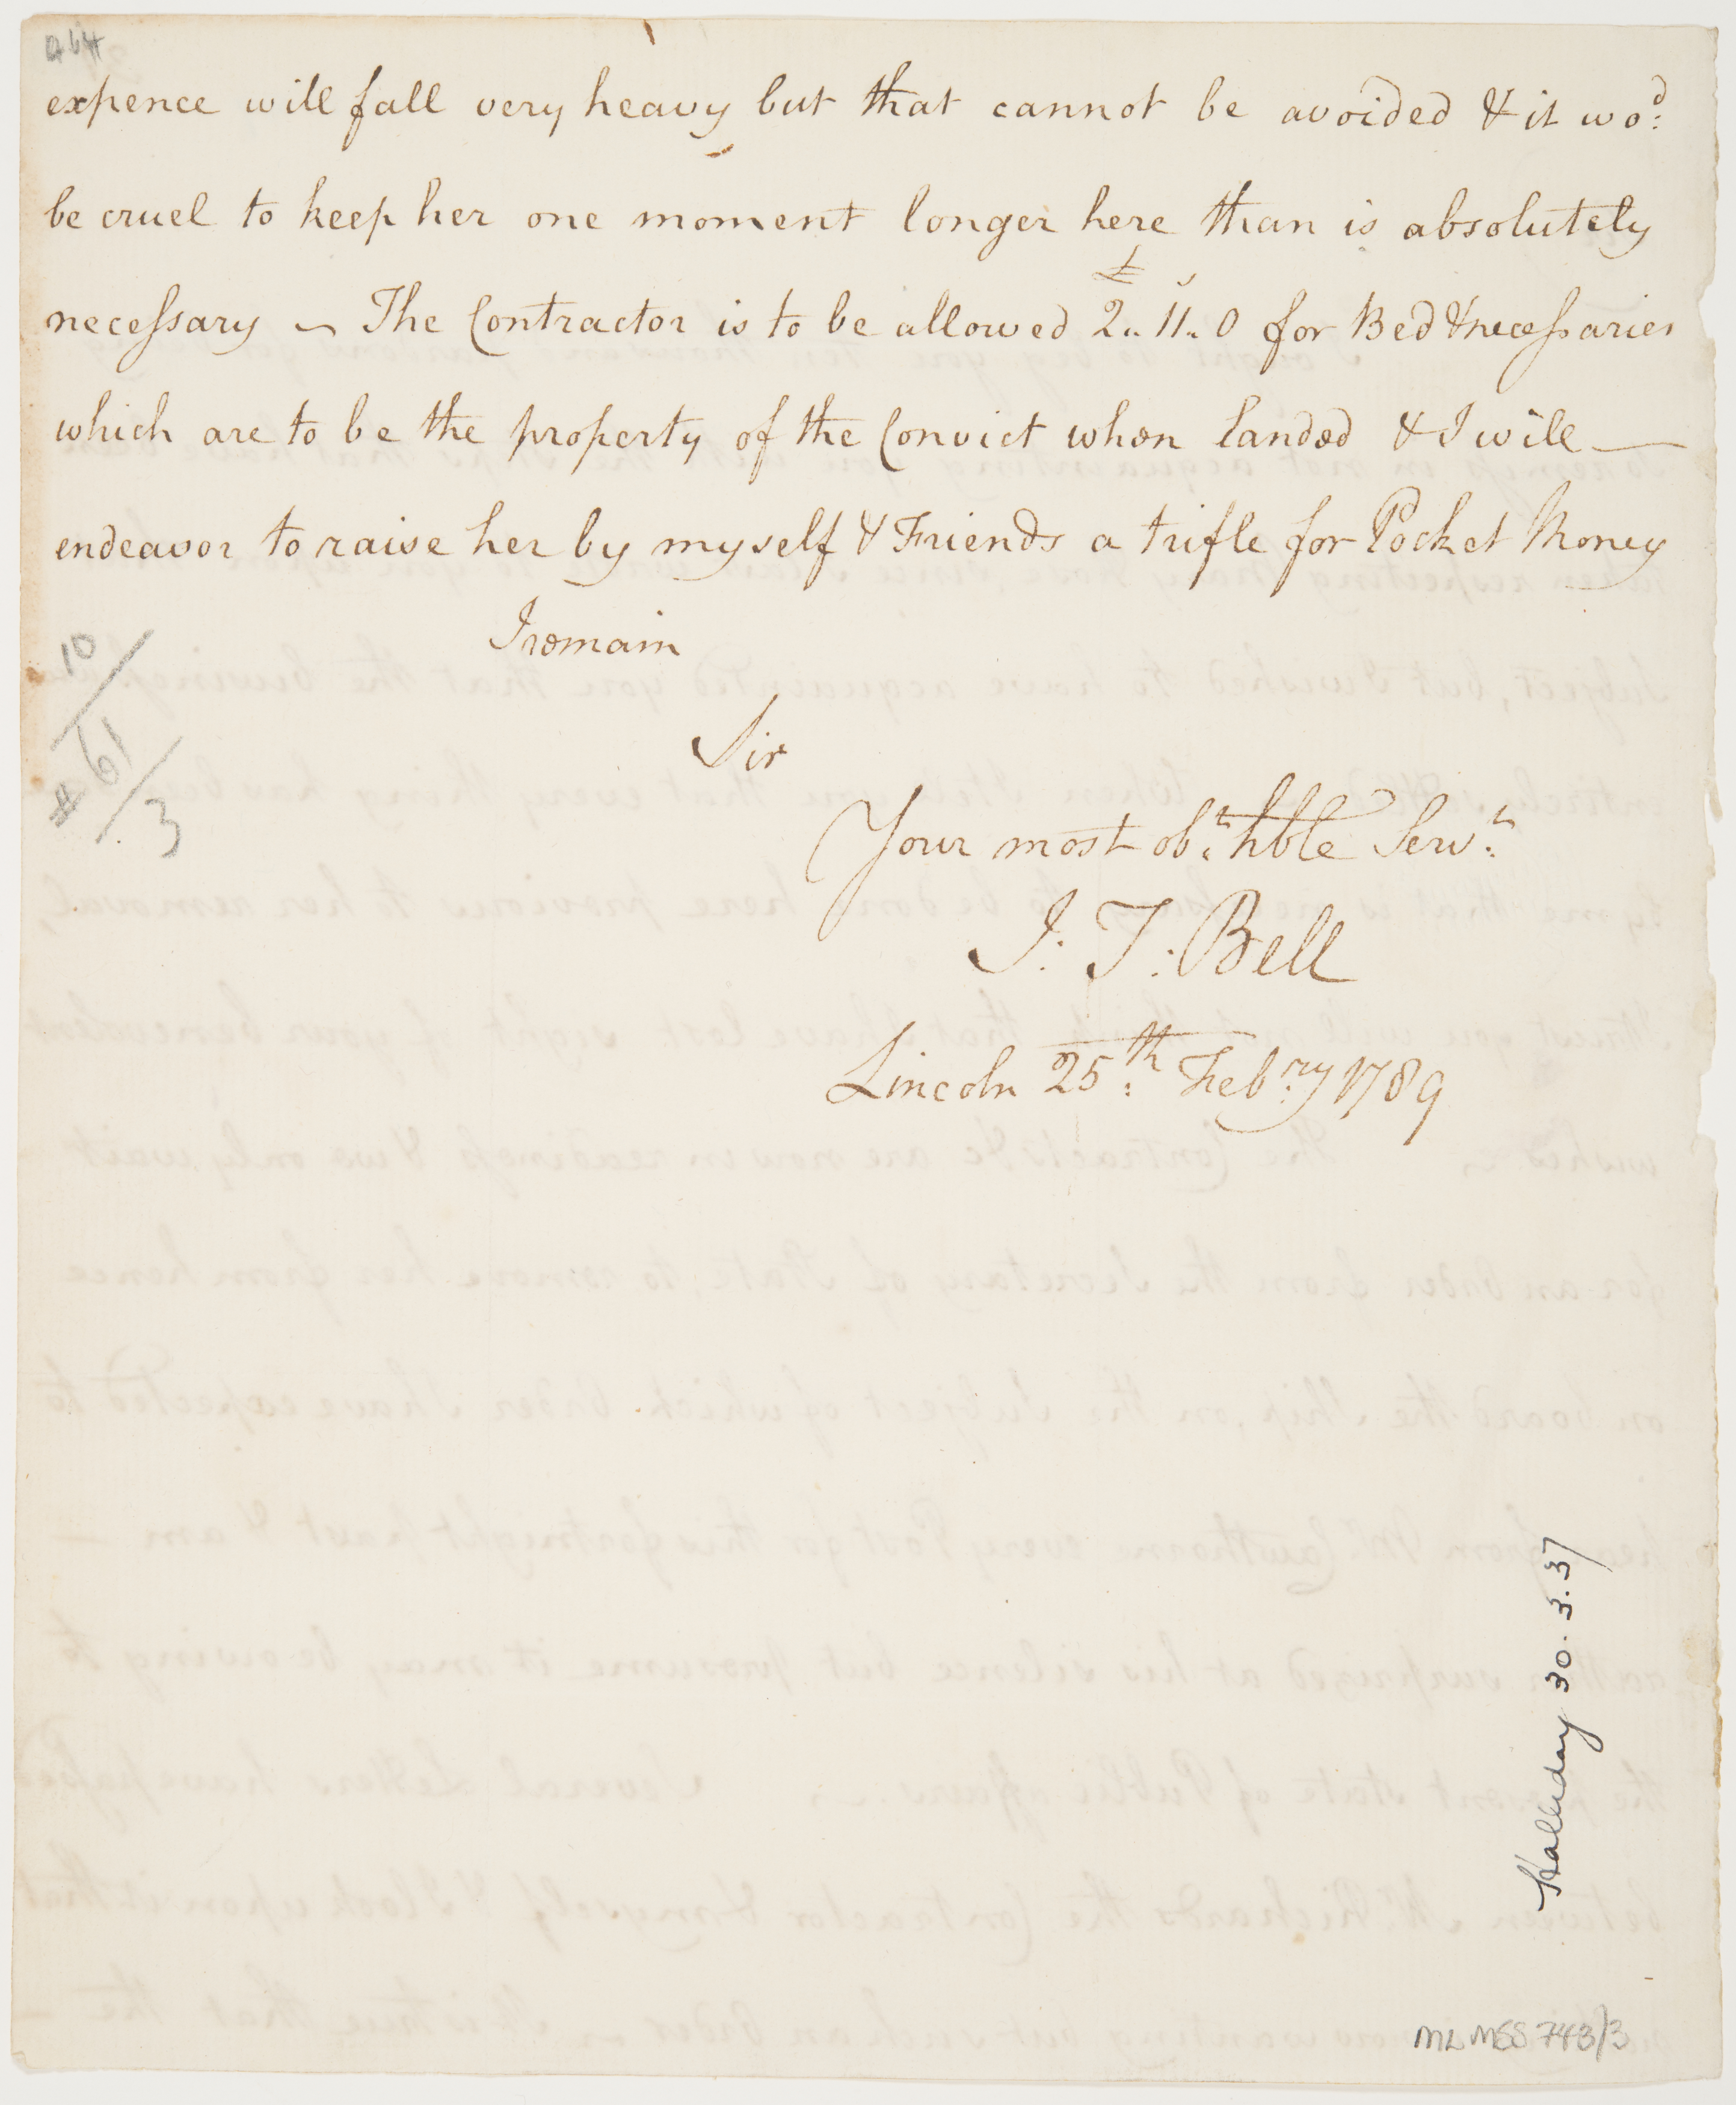 a64
expence will fall very heavy but that cannot be avoided & it wo:d
be cruel to keep her one moment longer here than is absolutely
necessary ~ The Contractor is to be allowed £2.. 11.. 0 for Bed & necessaries
which are to be the property of the Convict when landed & I will —
endeavor to raise her by myself & Friends a trifle for Pocket Money
I remain
Sir
Your most ob:t hble Serv:t
J: T: Bell
Lincoln 25:th Feb:ry 1789
10/
# 61/3
Halliday 30.3.37
ML MSS 743/3